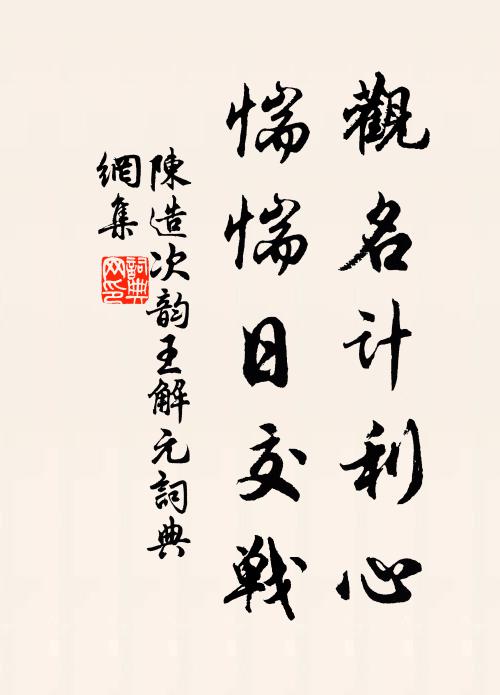 觀名計利心
惴惴日交戰
陳造次韵王解元詞典
網集
詞典網印